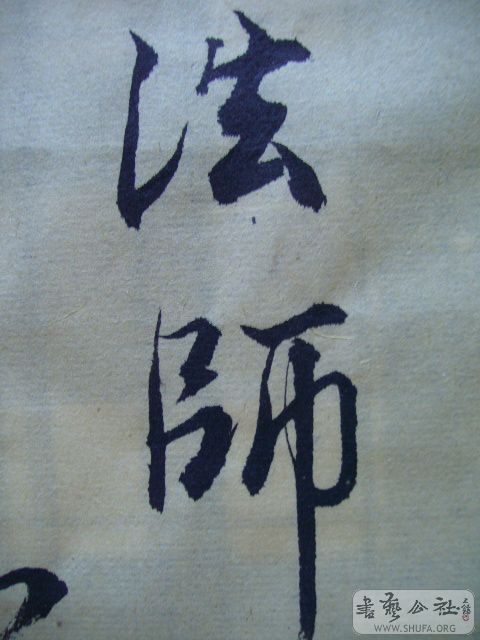 法師
書藝公社
WWW.SHUFA.ORG